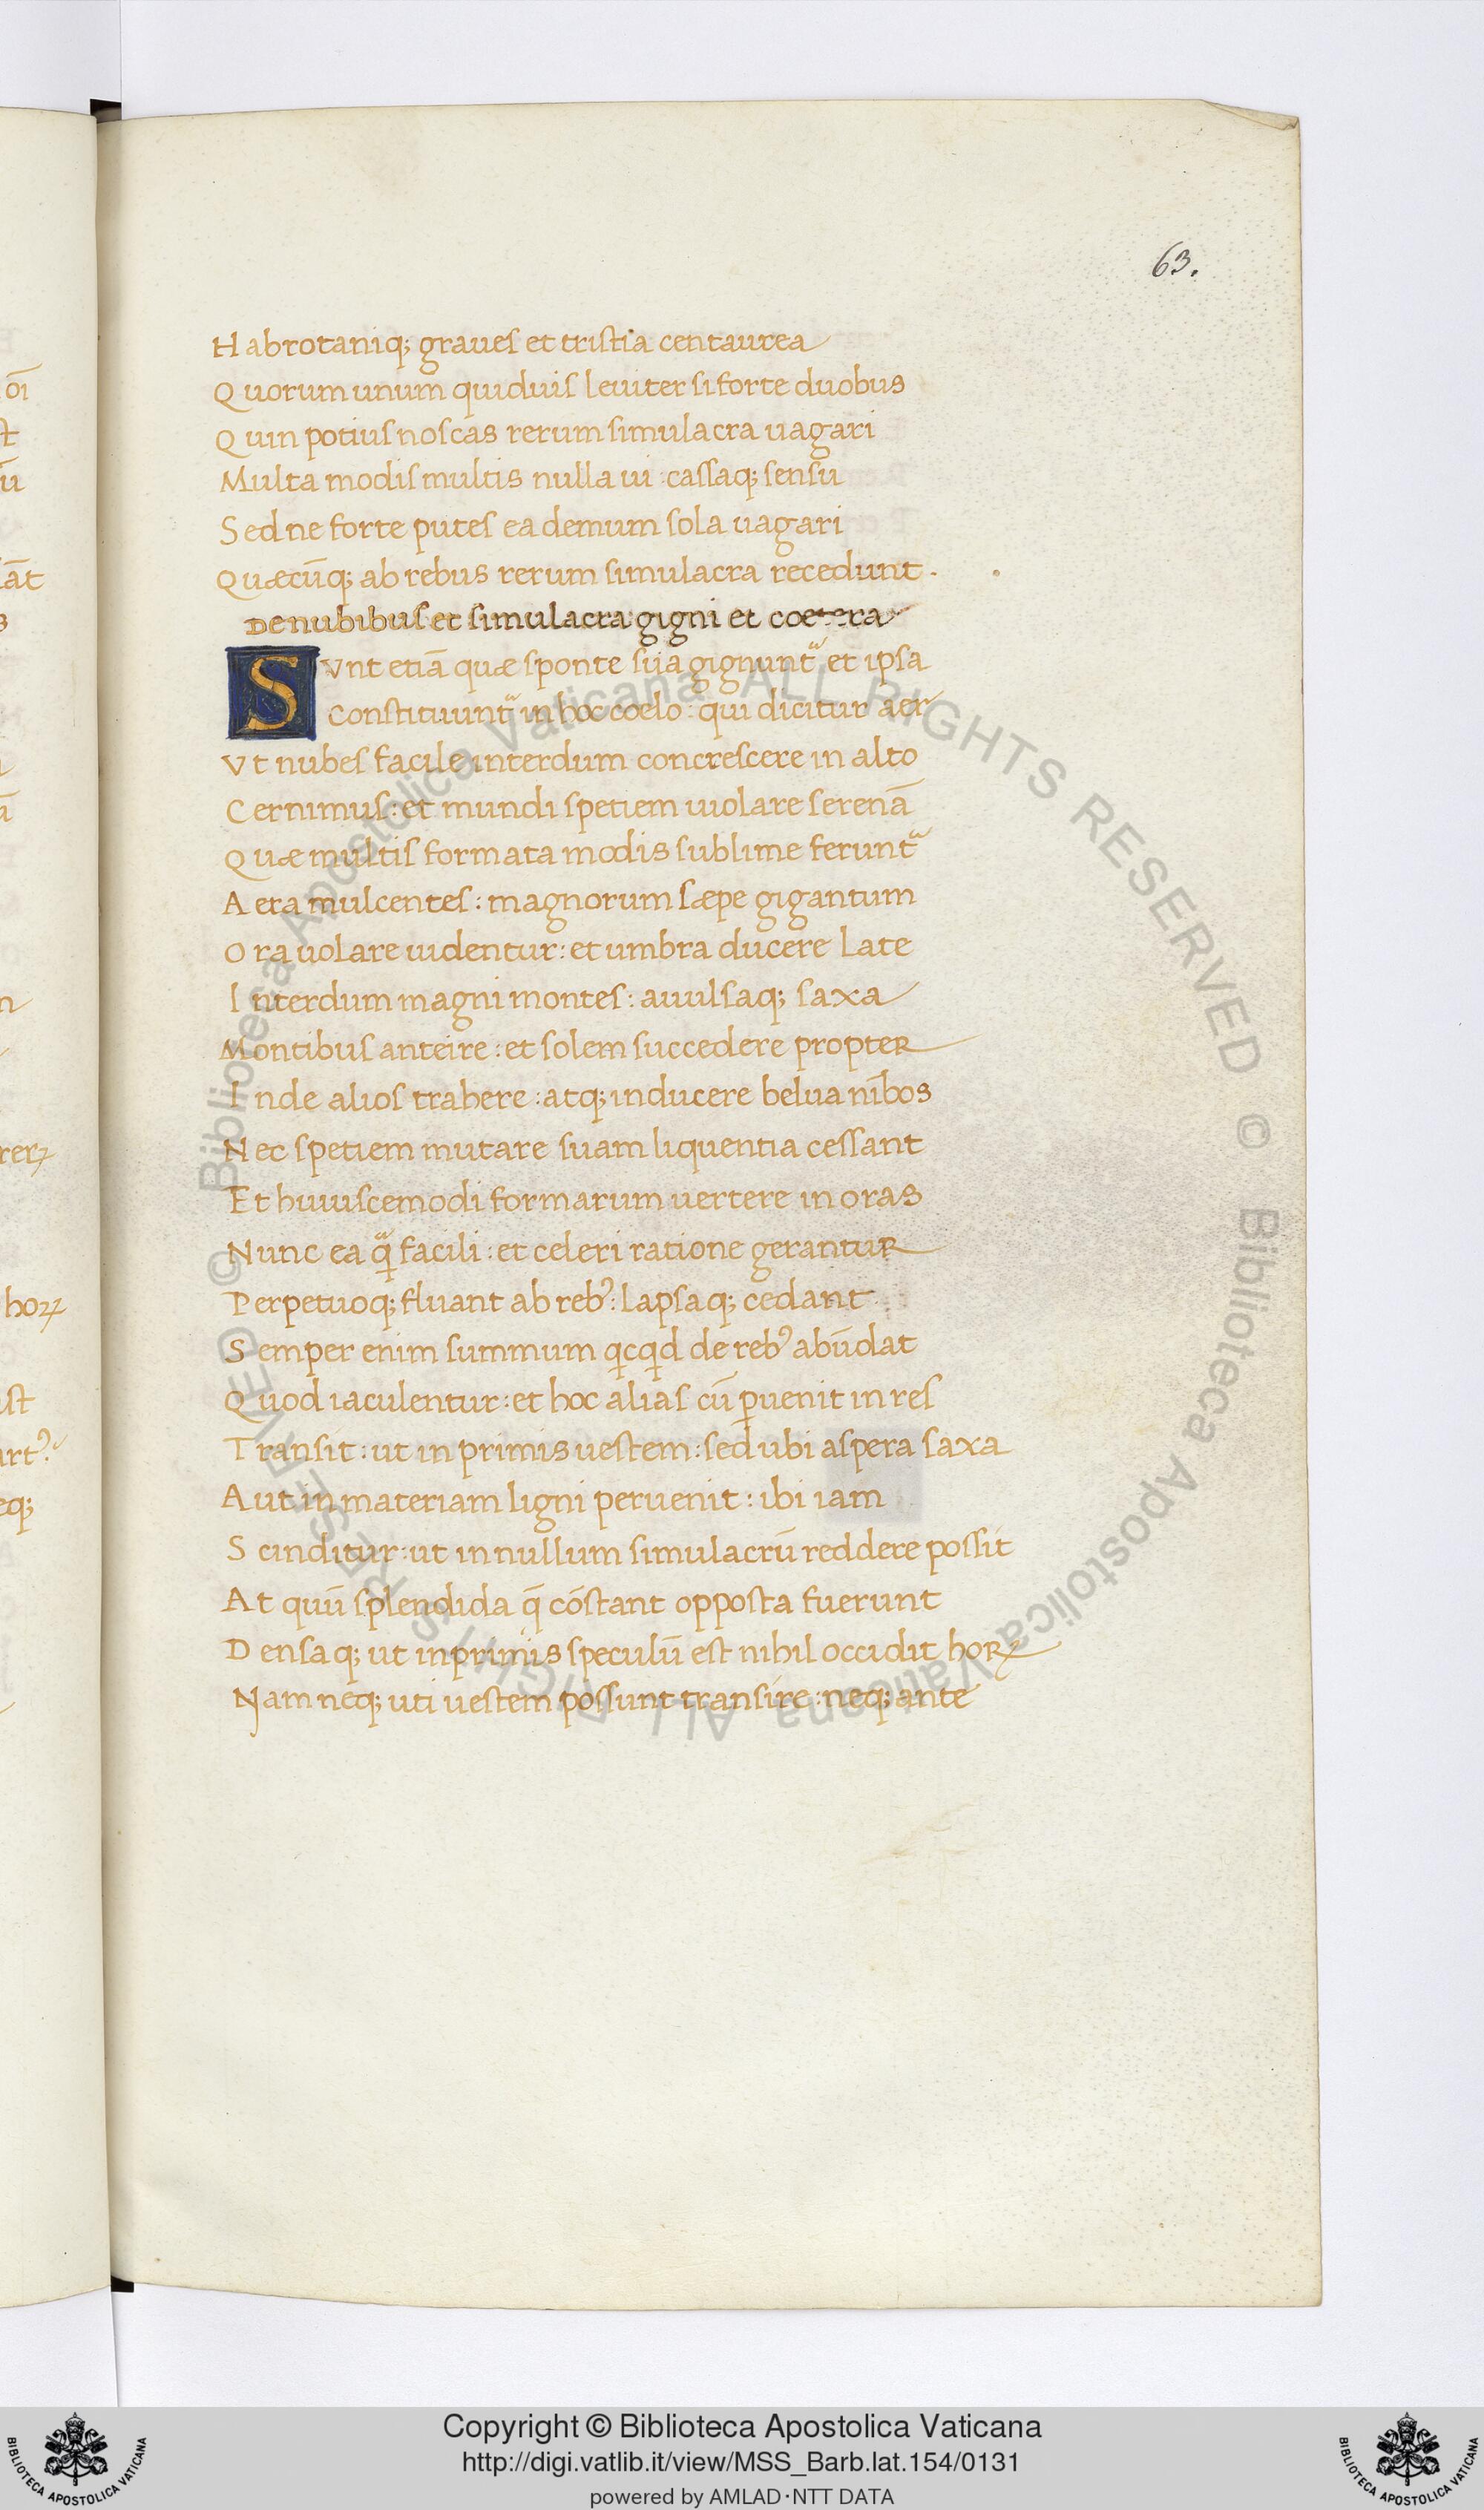 63.
oī
st
ū
āt
rerꝝ
horꝝ
ust
artꝰ
eq;
Habrotaniq; graues et tristia centaurea
Quorum unum quiduis leuiter si forte duobus
Quin potius noscas rerum simulacra uagari
Multa modis multis nulla ui : cassaq; sensu
Sed ne forte putes ea demum sola uagari
Quæcūq; ab rebus rerum simulacra recedunt .
De nubibus et simulacra gigni et coetera
SVnt etiā quæ sponte sua gignunt᷑ et ipsa
Constituunt᷑ in hoc coelo : qui dicitur aer
Vt nubes facile interdum concrescere in alto
Cernimus : et mundi spetiem uiolare serenā
Quæ multis formata modis sublime ferunt᷑
Aera mulcentes : magnorum sæpe gigantum
Ora uolare uidentur : et umbra ducere late
Interdum magni montes : auulsaq; saxa
Montibus anteire : et solem succedere propter
Inde alios trahere : atq; inducere belua nībos
Nec spetiem mutare suam liquentia cessant
Et huiuscemodi formarum uertere in oras
Nunc ea q̈ facili : et celeri ratione gerantur
Perpetuoq; fluant ab rebꝰ : lapsaq; cedant
Semper enim summum qcqd de rebꝰ abūdat
Quod iaculentur : et hoc alias cū ꝑuenit in res
Transit : ut in primis uestem : sed ubi aspera saxa
Aut in materiam ligni peruenit : ibi iam
Scinditur : ut in nullum simulacrū reddere possit
At quū splendida q̄ cōstant opposta fuerunt
Densaq; ut inprimis speculū est nihil occidit horꝝ
Nam neq; uti uestem possunt transire : neq; ante
© Biblioteca Apostolica Vaticana ALL RIGHTS RESERVED © Biblioteca Apostolica Vaticana ALL RIGHTS RESERVED
BIBLIOTECA APOSTOLICA VATICANA
Copyright © Biblioteca Apostolica Vaticana
http://digi.vatlib.it/view/MSS_Barb.lat.154/0131
powered by AMLAD·NTT DATA
BIBLIOTECA APOSTOLICA VATICANA